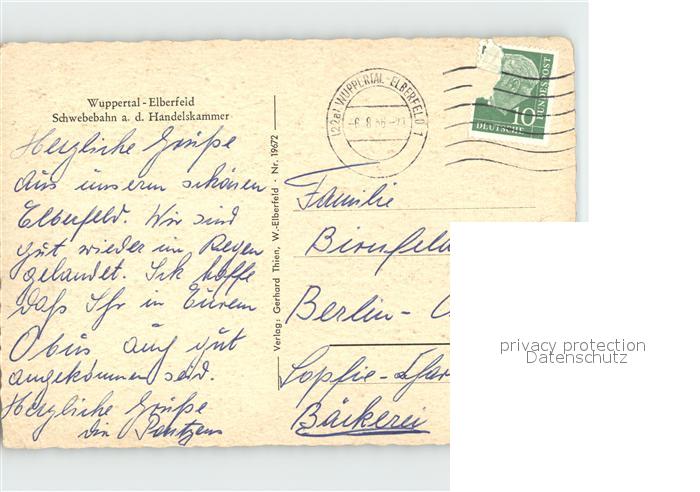 Wuppertal-Elberfeld
Schwebebahn a. d. Handelskammer
Herzliche Grüße
aus unserm schönen
Elberfeld. Wir sind
gut wieder im Regen
gelandet. Ich hoffe
daß Ihr in Eurem
Obus auch gut
angekommen seid.
Herzliche Grüße
Verlag: Gerhard Thien, W.-Elberfeld - Nr. 19672
(22a) WUPPERTAL-ELBERFELD 1
-6.8.56
10
DEUTSCHE
BUNDESPOST
Familie
Birnfeld
Berlin-
Sophie-Char
Bäckerei
privacy protection
Datenschutz